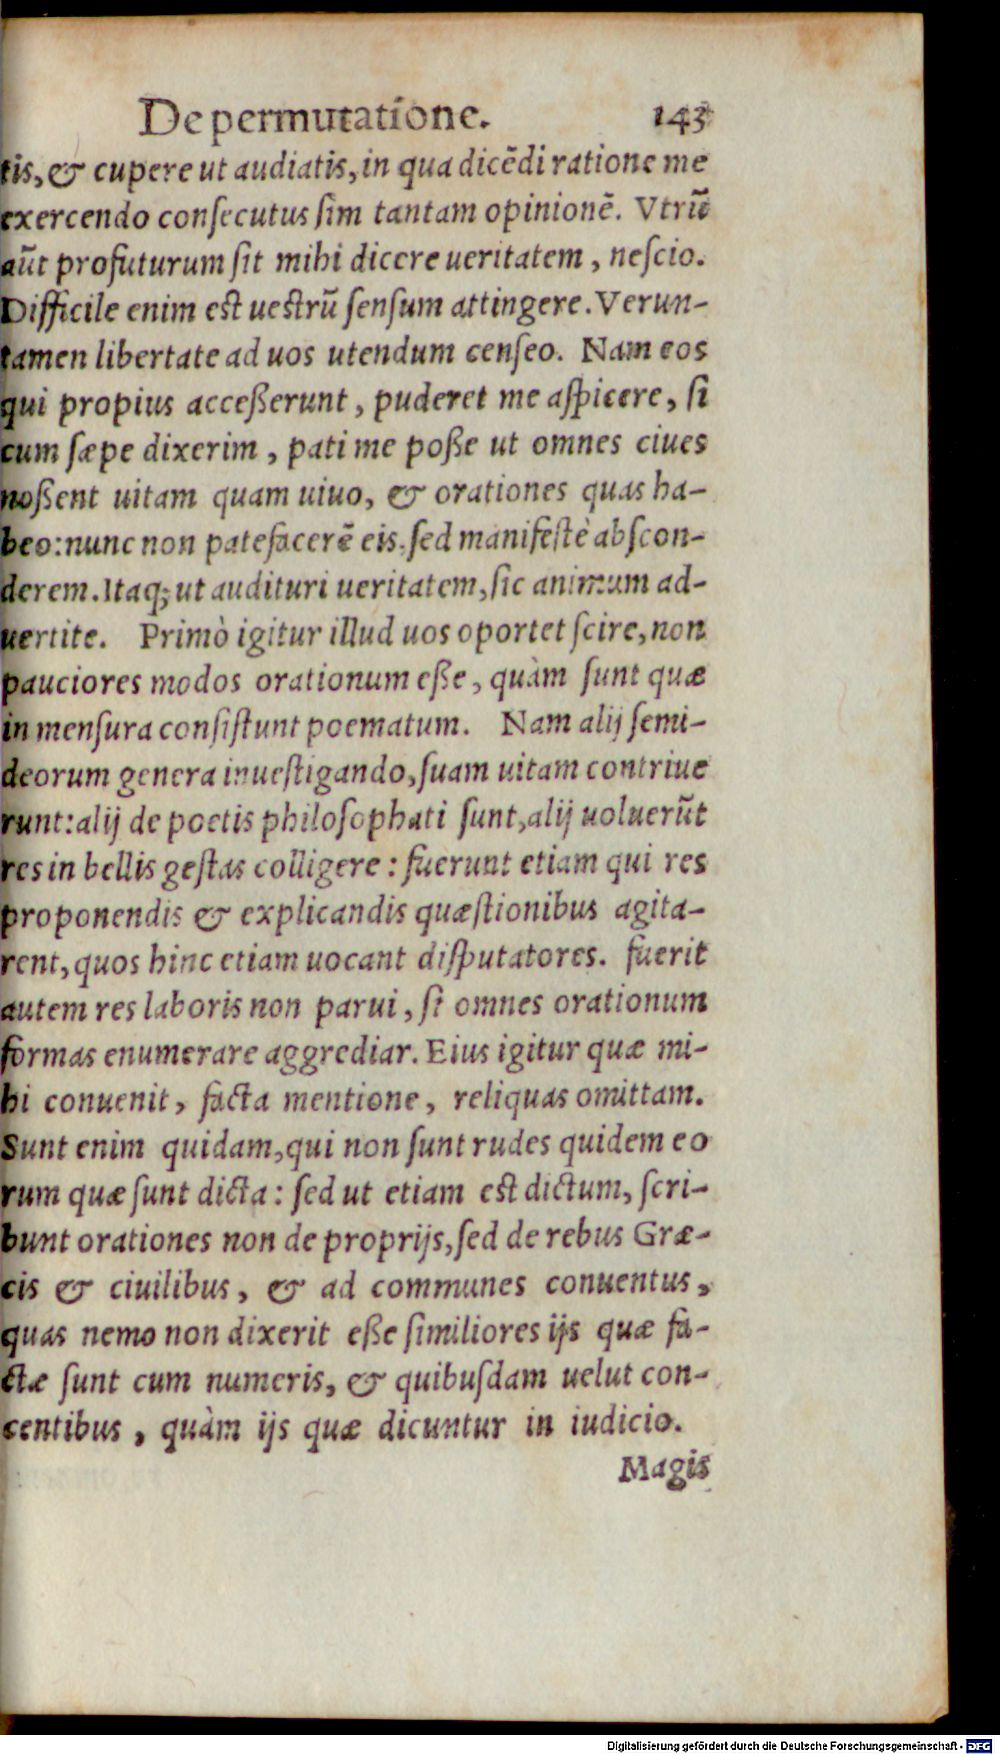 De permutatione. 143
tis, & cupere ut audiatis, in qua dicẽdi ratione me
exercendo conſecutus ſim tantam opinionẽ. Vtrũ
aũt profuturum ſit mihi dicere ueritatem, neſcio.
Difficile enim eſt ueſtrũ ſenſum attingere. Verun-
tamen libertate ad uos utendum cenſeo. Nam eos
qui propius acceßerunt, puderet me aſpicere, ſi
cum ſæpe dixerim, pati me poße ut omnes ciues
noßent uitam quam uiuo, & orationes quas ha-
beo: nunc non patefacerẽ eis, ſed manifeſtè abſcon-
derem. Itaq; ut audituri ueritatem, ſic animum ad-
uertite. Primò igitur illud uos oportet ſcire, non
pauciores modos orationum eße, quàm ſunt quæ
in menſura conſiſtunt poematum. Nam alij ſemi-
deorum genera inueſtigando, ſuam uitam contriue
runt: alij de poetis philoſophati ſunt, alij uoluerũt
res in bellis geſtas colligere: fuerunt etiam qui res
proponendis & explicandis quæſtionibus agita-
rent, quos hinc etiam uocant diſputatores. fuerit
autem res laboris non parui, ſi omnes orationum
formas enumerare aggrediar. Eius igitur quæ mi-
hi conuenit, facta mentione, reliquas omittam.
Sunt enim quidam, qui non ſunt rudes quidem eo
rum quæ ſunt dicta: ſed ut etiam eſt dictum, ſcri-
bunt orationes non de proprijs, ſed de rebus Græ-
cis & ciuilibus, & ad communes conuentus,
quas nemo non dixerit eße ſimiliores ijs quæ fa-
ctæ ſunt cum numeris, & quibuſdam uelut con-
centibus, quàm ijs quæ dicuntur in iudicio.
Magis
Digitalisierung gefördert durch die Deutsche Forschungsgemeinschaft - DFG